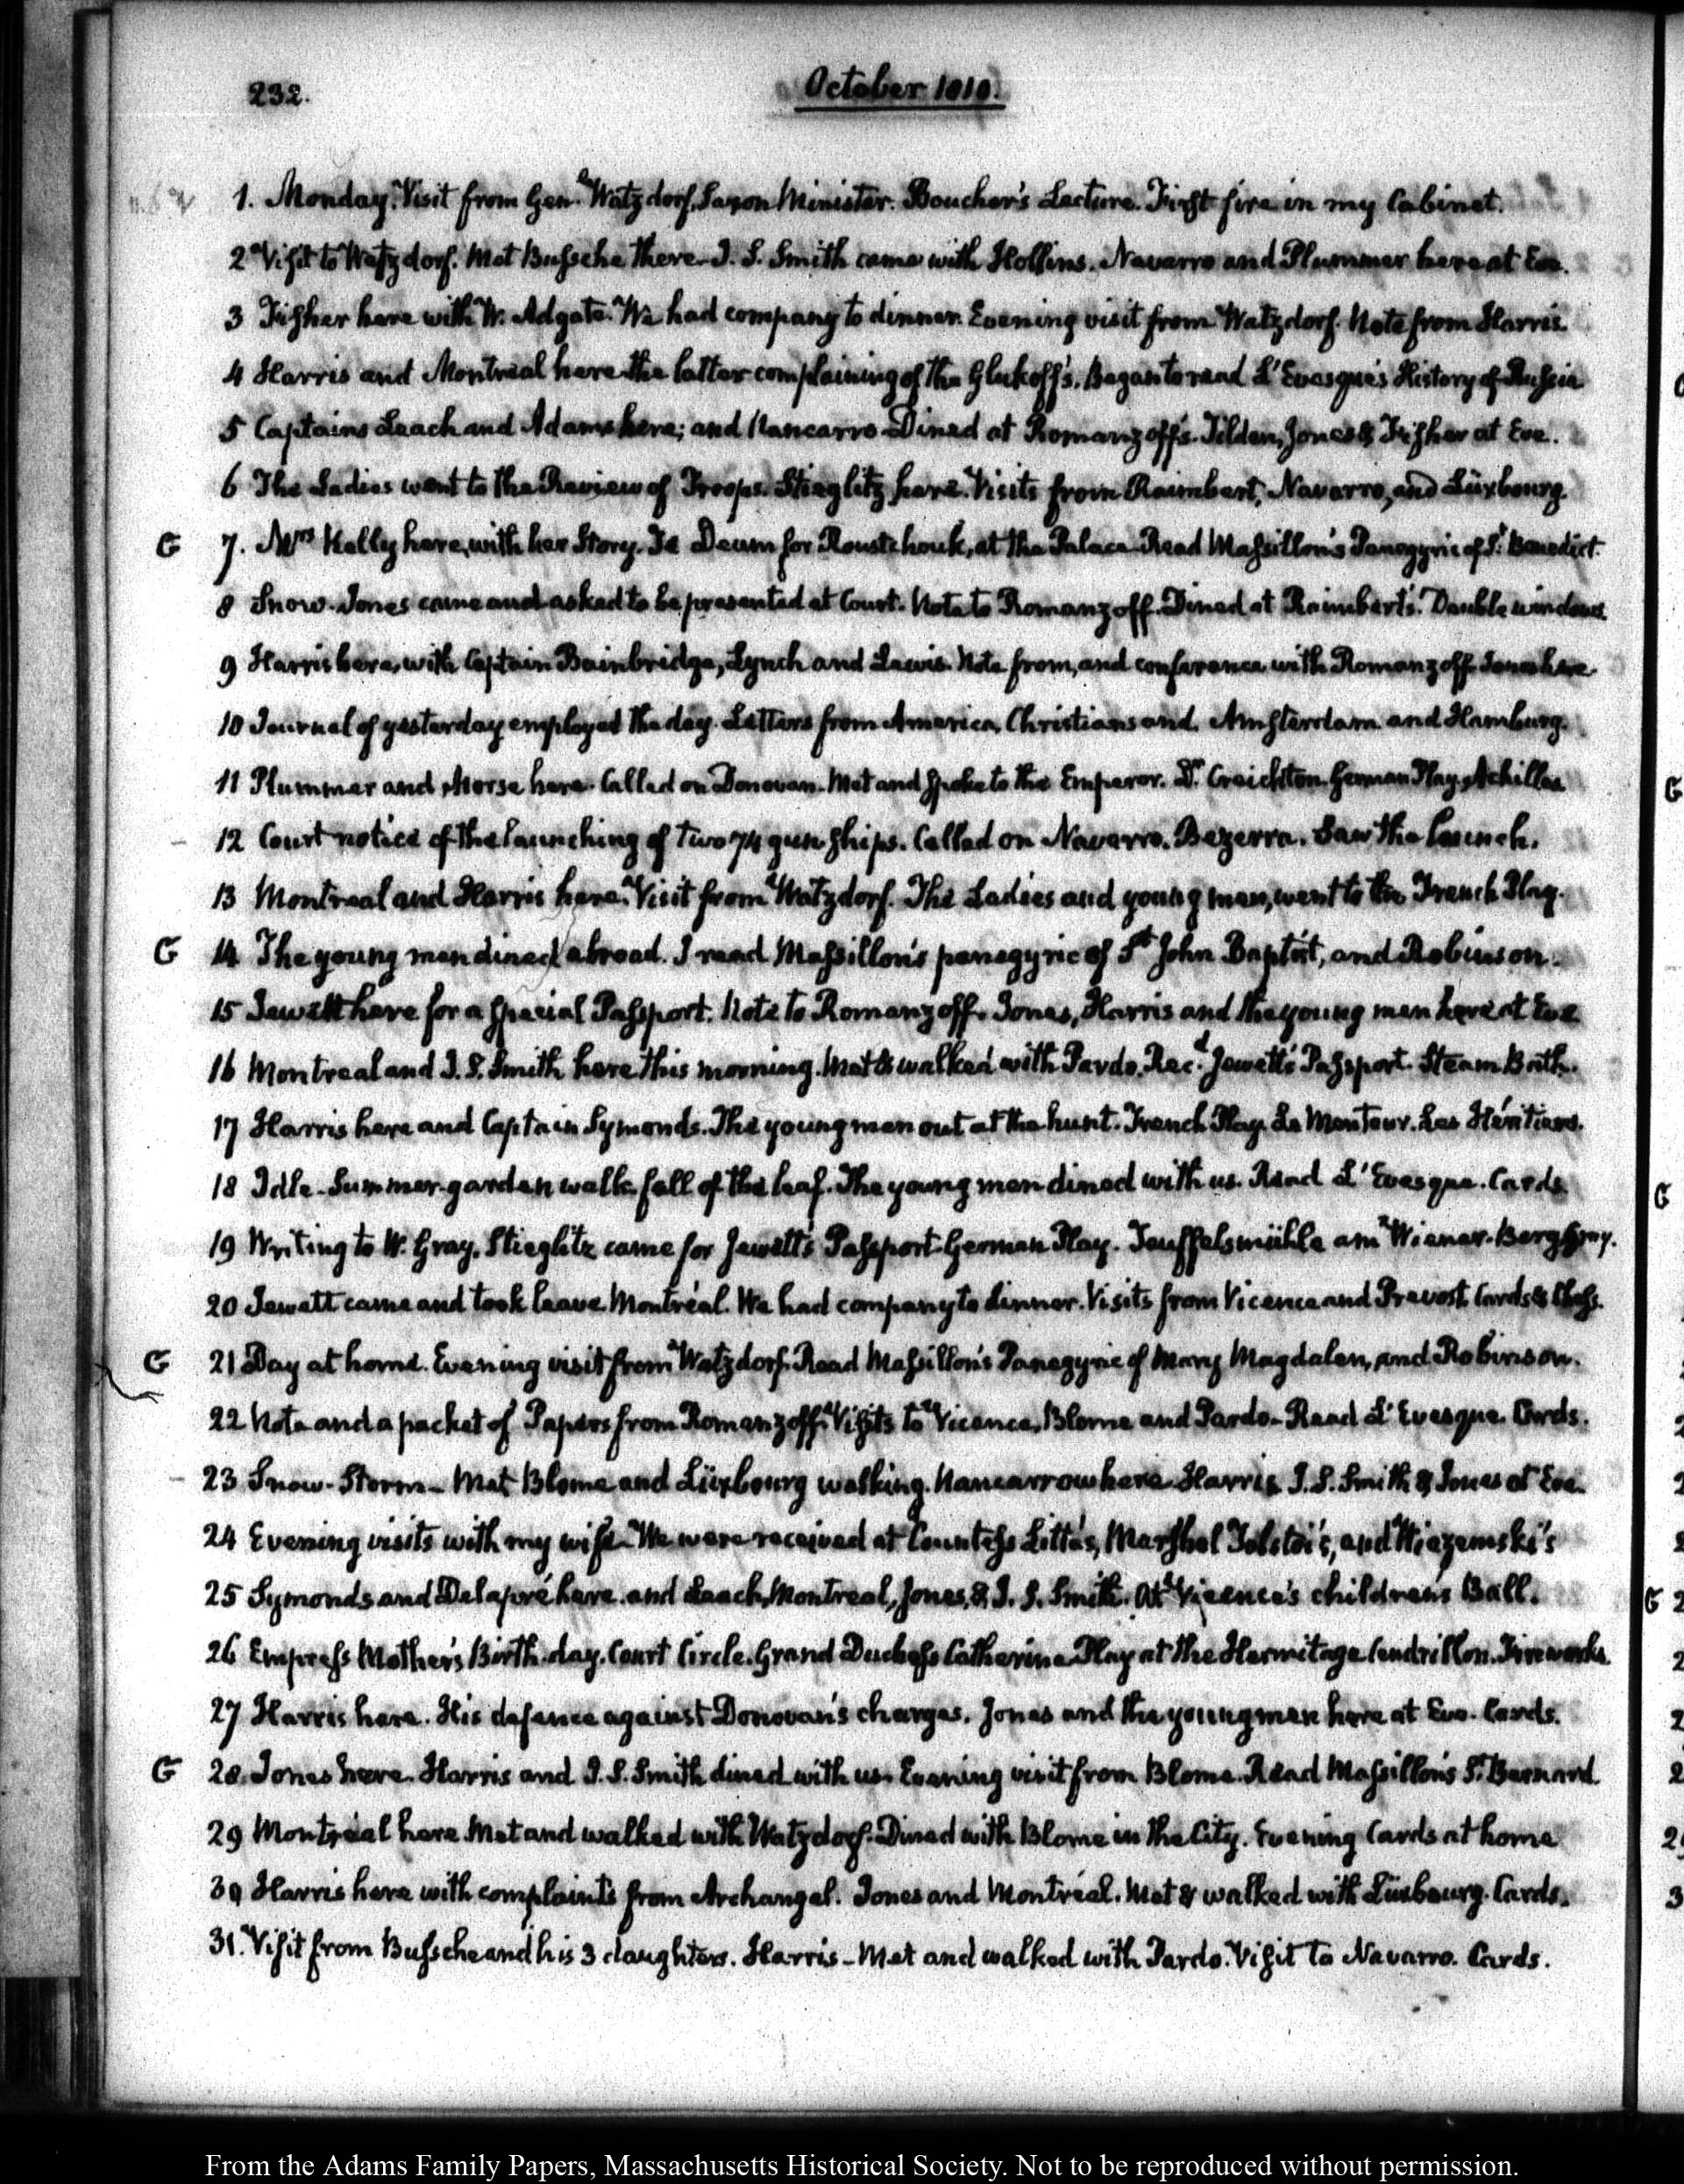 232.
October 1810.
1. Monday. Visit from Gen.l Watzdorf, Saxon Minister. Boucher's Lecture. First fire in my Cabinet.
2 Visit to Watzdorf. Met Bussche there. J. S. Smith came with Hollins. Navarro and Plummer here at Eve.
3 Fisher here with W. Adgate. We had company to dinner. Evening visit from Watzdorf. Note from Harris.
4 Harris and Montreal here the latter complaining of the Glukoff's. Began to read L'Evesque's History of Russia
5 Captains Leach and Adams here; and Nancarro. Dined at Romanzoff's. Tilden, Jones & Fisher at Eve.
6 The Ladies went to the Review of Troops. Stieglitz here. Visits from Raimbert, Navarro, and Lüxbourg.
G 7. Mrs Kelly here, with her Story. Te Deum for Roustchouk, at the Palace. Read Massillon's Panegyric of St. Benedict.
8 Snow. Jones came and asked to be presented at Court. Note to Romanzoff. Dined at Raimbert's. Double windows.
9 Harris here, with Captain Bainbridge, Lynch and Lewis. Note from, and conference with Romanzoff. Jones here.
10 Journal of yesterday employed the day. Letters from America, Christiansand, Amsterdam and Hamburg.
11 Plummer and Morse here. Called on Donovan. Met and Spoke to the Emperor. Dr. Creichton. German Play, Achilles
12 Court notice of the launching of two 74 gun ships. Called on Navarro. Bezerra. Saw the launch.
13 Montreal and Harris here. Visit from Watzdorf. The Ladies and young men, went to the French Play.
G 14 The young men dined abroad. I read Massillon's panegyric of St John Baptist, and Robinson.
15 Jewett here for a special Passport. Note to Romanzoff. Jones, Harris and the young men here at Eve
16 Montreal and J. S. Smith here this morning. Met & walked with Pardo. Rec.d Jewett's Passport. Steam Bath.
17 Harris here and Captain Symonds. The young men out at the hunt. French Play. Le Menteur. Les Héritiers.
18 Idle. Summer-garden walk. fall of the leaf. The young men dined with us. Read L'Evesque. Cards.
19 Writing to W. Gray. Stieglitz came for Jewett's Passport. German Play. Teuffelsmühle am Wiener-Berg.
20 Jewett came and took leave. Montréal. We had company to dinner. Visits from Vicence and Prevost. Cards & Chess.
G 21 Day at home. Evening visit from Watzdorf. Read Massillon's Panegyric of Mary Magdalen, and Robinson.
22 Note and a packet of Papers from Romanzoff. Visits to Vicence, Blome and Pardo. Read L'Evesque. Cards.
23 Snow-Storm. Met Blome and Lüxbourg walking. Nancarrow here. Harris, J. S. Smith & Jones at Eve.
24 Evening visits with my wife. We were received at Countess Litta's, Marshal Tolstoi's, and Wiazemski's
25 Symonds and Delapré here. and Leach, Montreal, Jones, & J. S. Smith. At Vicence's children's Ball.
26 Empress Mother's Birth-day. Court Circle. Grand Duchess Catherine. Play at the Hermitage Cendrillon. Fireworks.
27 Harris here. His defence against Donovan's charges. Jones and the young men here at Eve. Cards.
G 28. Jones here. Harris and J. S. Smith dined with us. Evening visit from Blome. Read Massillon's St. Bernard.
29 Montréal here. Met and walked with Watzdorf. Dined with Blome in the City. Evening Cards at home
30 Harris here with complaints from Archangel. Jones and Montréal. Met & walked with Lüxbourg. Cards.
31. Visit from Bussche and his 3 daughters. Harris - Met and walked with Pardo. Visit to Navarro. Cards.
From the Adams Family Papers, Massachusetts Historical Society. Not to be reproduced without permission.